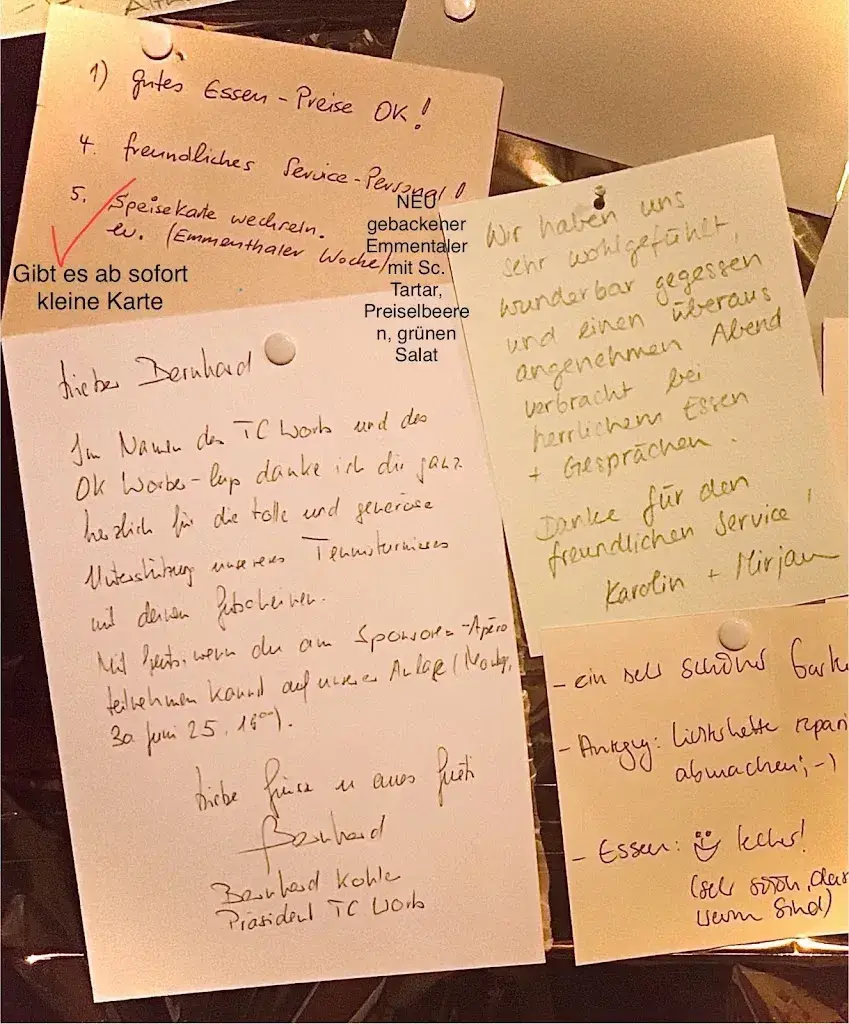 1) gutes Essen - Preise OK!
4. freundliches Service-Personal!
5. Speisekarte wechseln.
ev. (Emmenthaler Woche)
Gibt es ab sofort
kleine Karte
NEU
gebackener
Emmentaler
mit Sc.
Tartar,
Preiselbeere
n, grünen
Salat
Wir haben uns
sehr wohlgefühlt,
wunderbar gegessen
und einen überaus
angenehmen Abend
verbracht bei
herrlichem Essen
+ Gesprächen.
Danke für den
freundlichen Service!
Karolin + Mirjam
Lieber Bernhard
Im Namen des TC Worb und des
OK Worber-Cup danke ich dir ganz
herzlich für die tolle und generöse
Unterstützung unseres Tennisturnieres
mit deinen Gutscheinen.
Mit freuts, wenn du am Sponsoren-Apéro
teilnehmen kannst auf unserer Anlage (Montag,
30 Juni 25, 18⁰⁰).
Liebe Grüsse u alles Gueti
Bernhard
Bernhard Kohle
Präsident TC Worb
- ein sehr schöner Garte
- Anregung: Lichterkette repari
abmachen ;-)
- Essen: lecker!
(sehr schön, dass
warm sind)